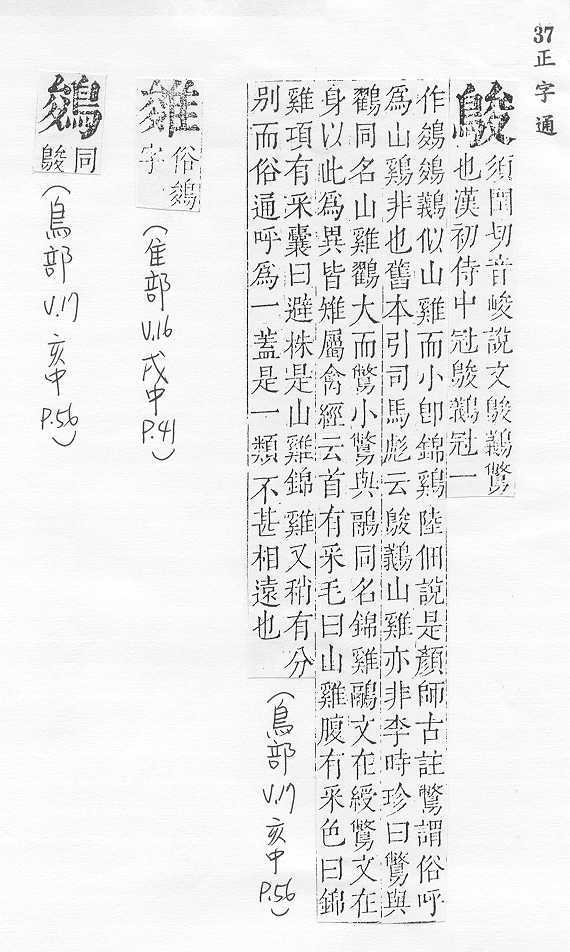 37正字通
鵔
須閏切音峻說文鵔鸃鷩
也漢初侍中冠鵔鸃冠一
作鵕鵕鸃似山雞而小卽錦鷄陸佃說是顏師古註鷩謂俗呼
爲山鷄非也舊本引司馬彪云鵔鸃山雞亦非李時珍曰鷩與
鸐同名山雞鸐大而鷩小鷩與鷊同名錦雞鷊文在綬鷩文在
身以此爲異皆雉屬禽經云首有采毛曰山雞腹有采色曰錦
雞項有采囊曰避株是山雞錦雞又稍有分
别而俗通呼爲一蓋是一類不甚相遠也
(鳥部 V.17 亥中 P.56)
俗鵕
字
(隹部 V.16 戌中 P.41)
鵕
同
鵔
(鳥部 V.17 亥中 P.56)